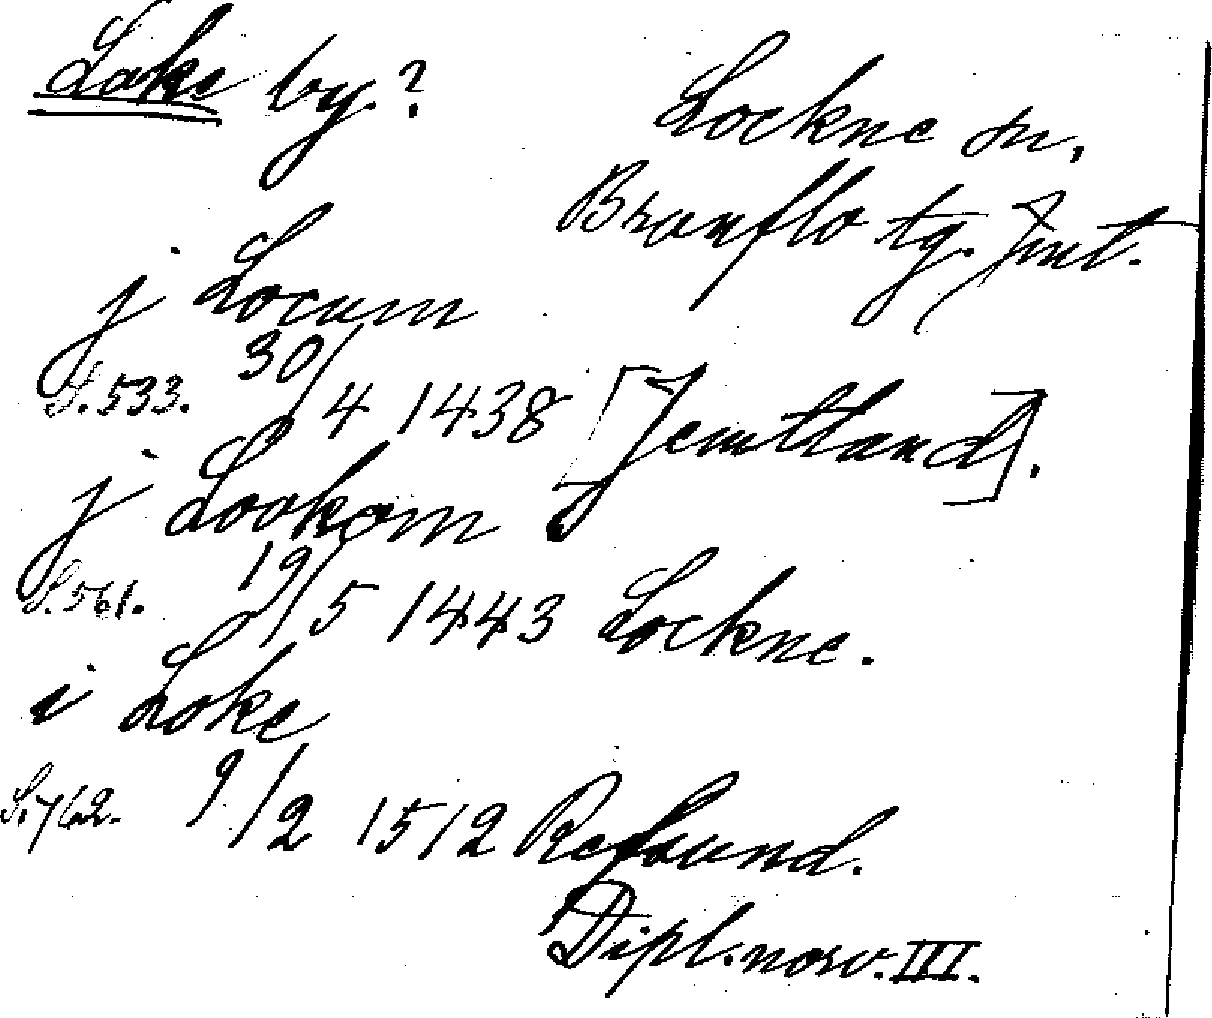 Loke by.?
Lockne sn,
Brunflo tg. Jmt.
j Locum
S. 533. 30/4 1438 [Jemtland].
j Lookom
S. 561. 19/5 1443 Lockne.
i Loke
S. 762. 9/2 1512 Refsund.
Dipl. norv. III.